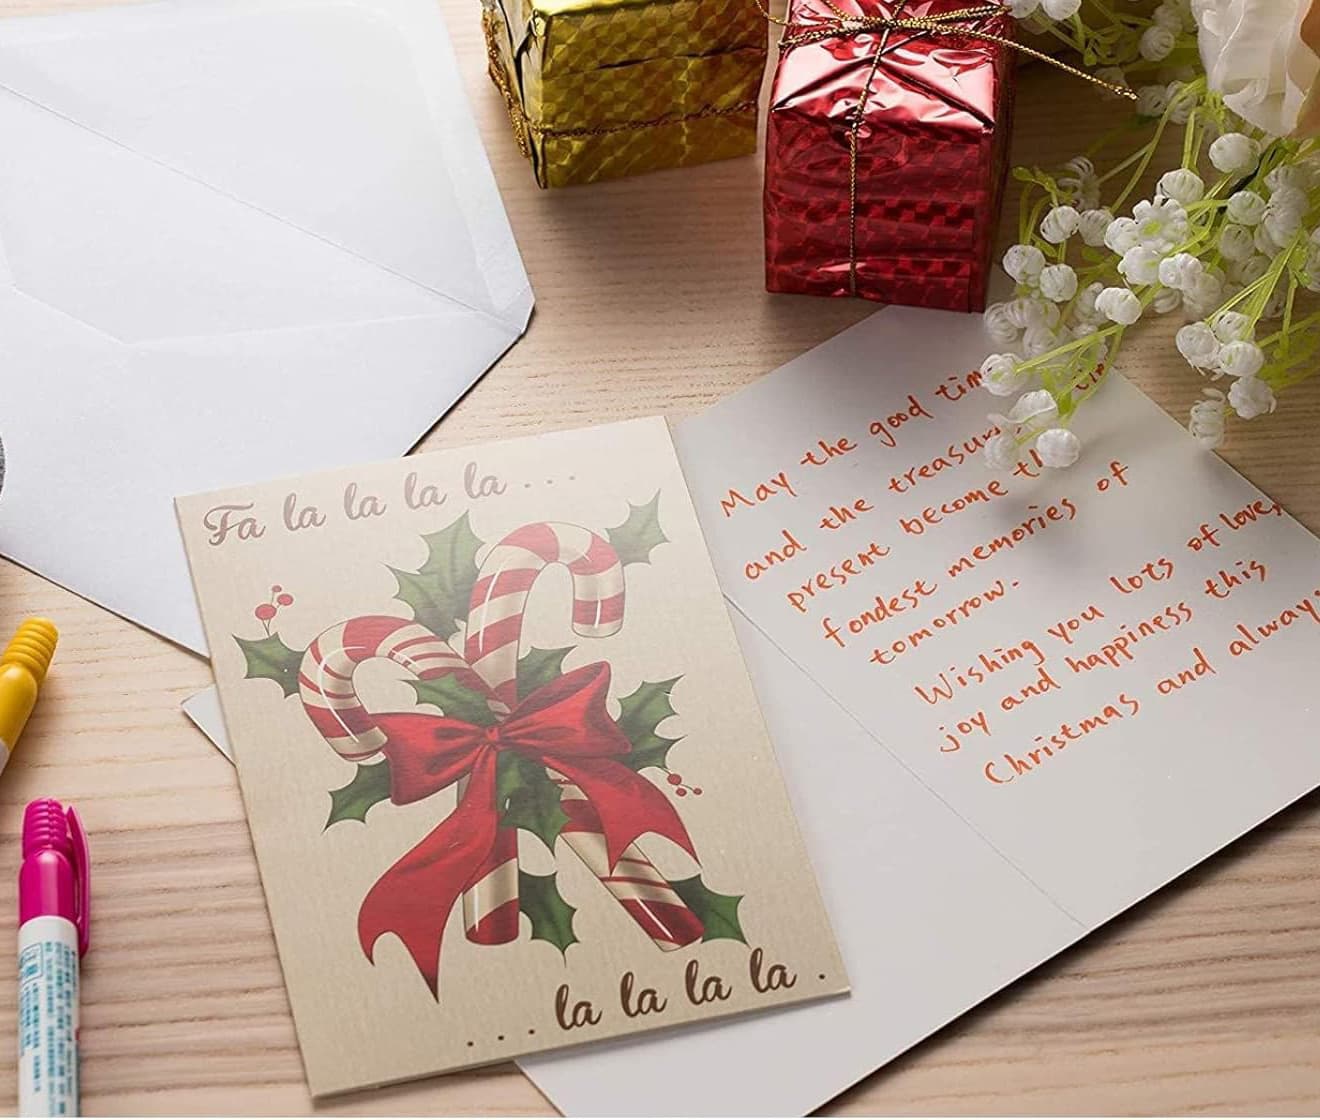 Fa la la la la . . .
. . . la la la la .
May the good
and the
present become
fondest memories of
tomorrow.
Wishing you lots of love,
joy and happiness this
Christmas and